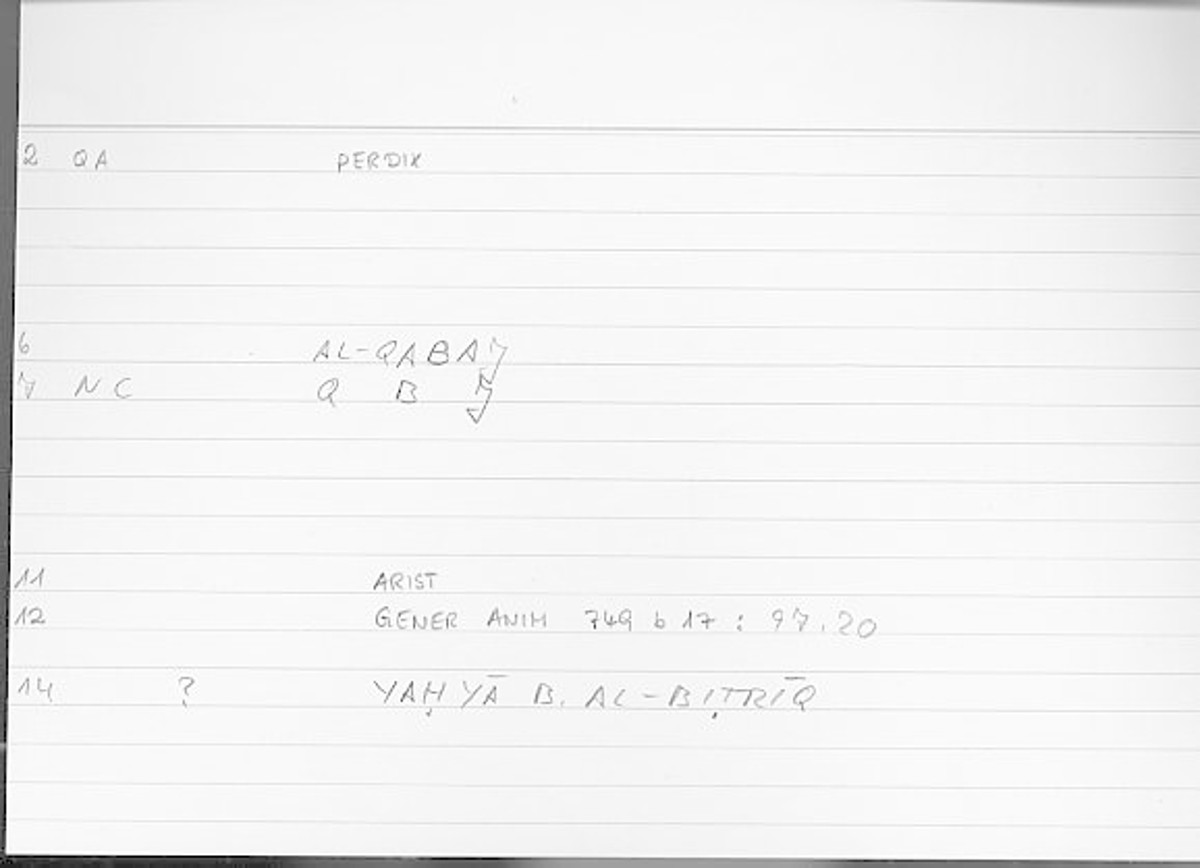 2 QA PERDIX
6 AL-QABAǦ
7 NC Q B Ǧ
11 ARIST
12 GENER ANIM 749 b 17 : 97.20
14 ? YAḤYĀ B. AL-BIṬRĪQ